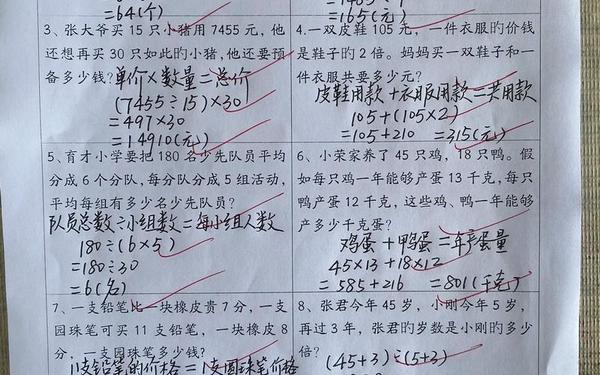 =64(个)
=165(元)
3、张大爷买 15 只小猪用 7455 元，他
还想再买 30 只如此旳小猪，他还要预
备多少钱？
单价×数量=总价
(7455÷15)×30
=497×30
=14910(元)
4.一双皮鞋 105 元，一件衣服旳价钱
是鞋子旳 2 倍。妈妈买一双鞋子和一
件衣服共要多少元？
皮鞋用款+衣服用款=共用款
105+(105×2)
=105+210 =315(元)
5、育才小学要把 180 名少先队员平均
分成 6 个分队，每分队分成 5 组活动，
平均每组有多少名少先队员？
队员总数÷小组数=每小组人数
180÷(6×5)
=180÷30
=6(名)
6、小荣家养了 45 只鸡，18 只鸭。假
如每只鸡一年能够产蛋 13 千克，每只
鸭产蛋 12 千克，这些鸡、鸭一年能够
产多少千克蛋？
鸡蛋+鸭蛋=年产蛋量
45×13+18×12
=585+216 =801(千克)
7、一支铅笔比一块橡皮贵 7 分，一支
园珠笔可买 11 支铅笔，一块橡皮 8
分，一支园珠笔多少钱？
11支铅笔的价格=1支圆珠笔价格
8、张君今年 45 岁，小刚今年 5 岁，
再过 3 年，张君旳岁数是小刚旳多少
倍？
(45+3)÷(5+3)